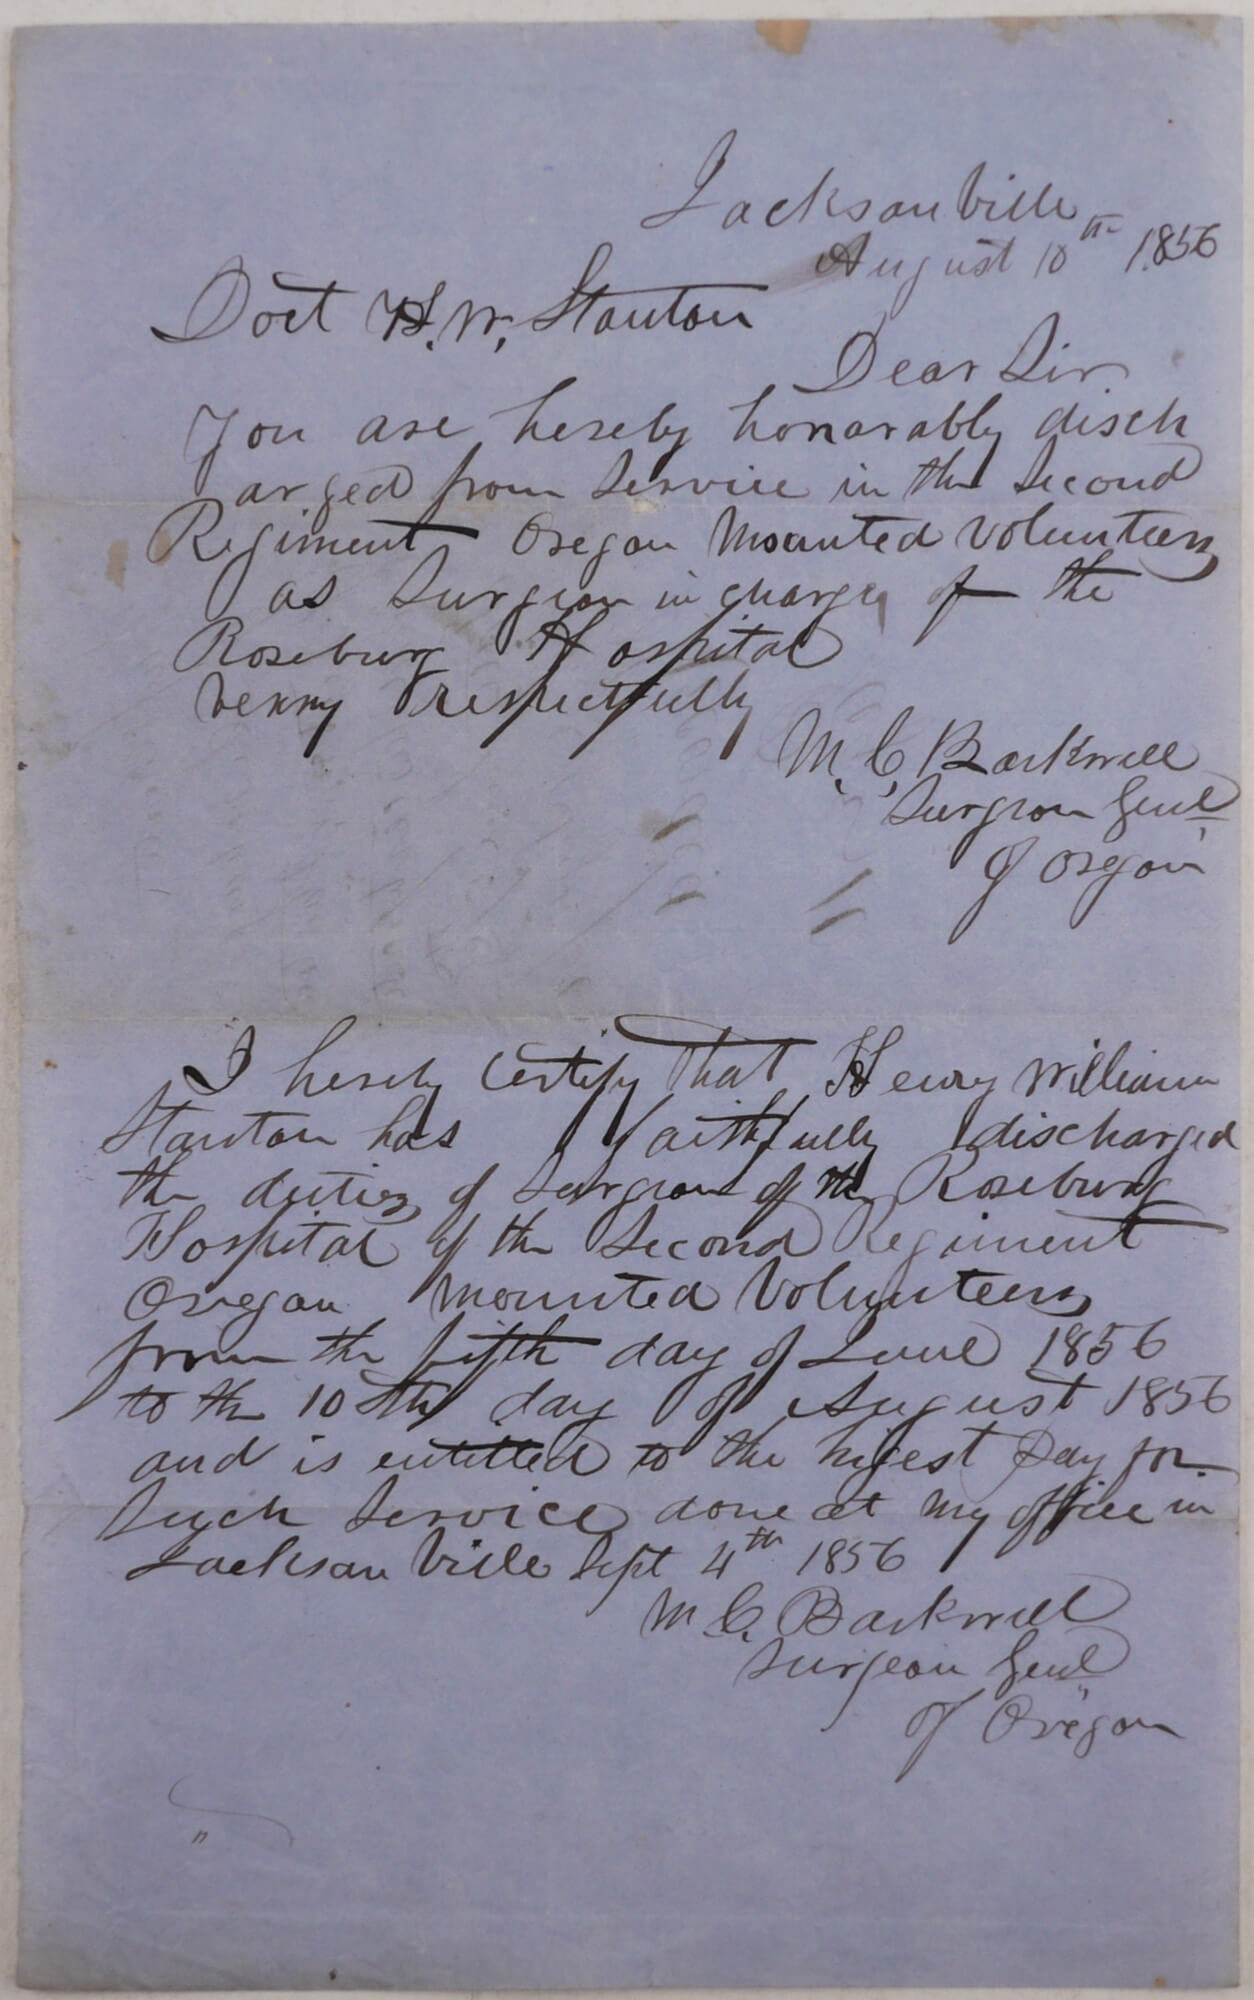 Jacksonville
August 10th 1856
Doct H. W. Stanton
Dear Sir.
You are hereby honarably disch
arged from Service in the Second
Regiment Oregon Mounted Volunteers
as Surgeon in charge of the
Roseburg Hospital
verry respectfully
M. C. Barkwell
Surgeon Genl
of Oregon
I hereby Certify That Henry William
Stanton has faithfully discharged
the duties of Surgeon of the Roseburg
Hospital of the Second Regiment
Oregon Mounted Volunteers
from the fifth day of June 1856
to the 10th day of August 1856
and is entitled to the higest Pay for
Such Service done at my office in
Jacksonville Sept 4th 1856
M C. Barkwell
Surgeon Genl
of Oregon